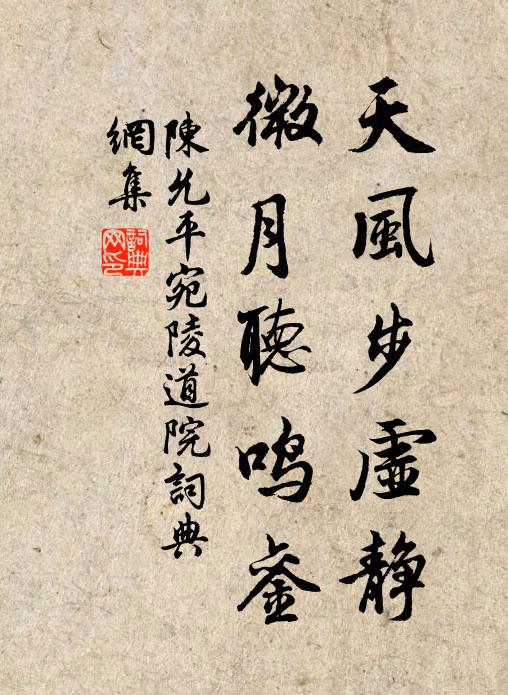 天風步虛靜
微月聽鸣銮
陳允平宛陵道院詞典
網集
詞典
网印